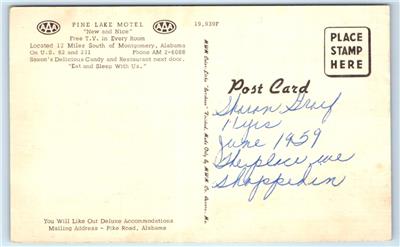 AAA
PINE LAKE MOTEL
AAA
"New and Nice"
Free T.V. in Every Room
Located 12 Miles South of Montgomery, Alabama
On U.S. 82 and 231 Phone AM 2-6088
Saxon's Delicious Candy and Restaurant next door,
"Eat and Sleep With Us."
19,939F
PLACE
STAMP
HERE
Post Card
Sharon
11 yrs
June 1959
The place we
shopped in
You Will Like Our Deluxe Accommodations
Mailing Address - Pike Road, Alabama